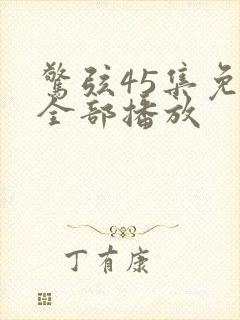 驚弦45集免
全部播放
丁有康